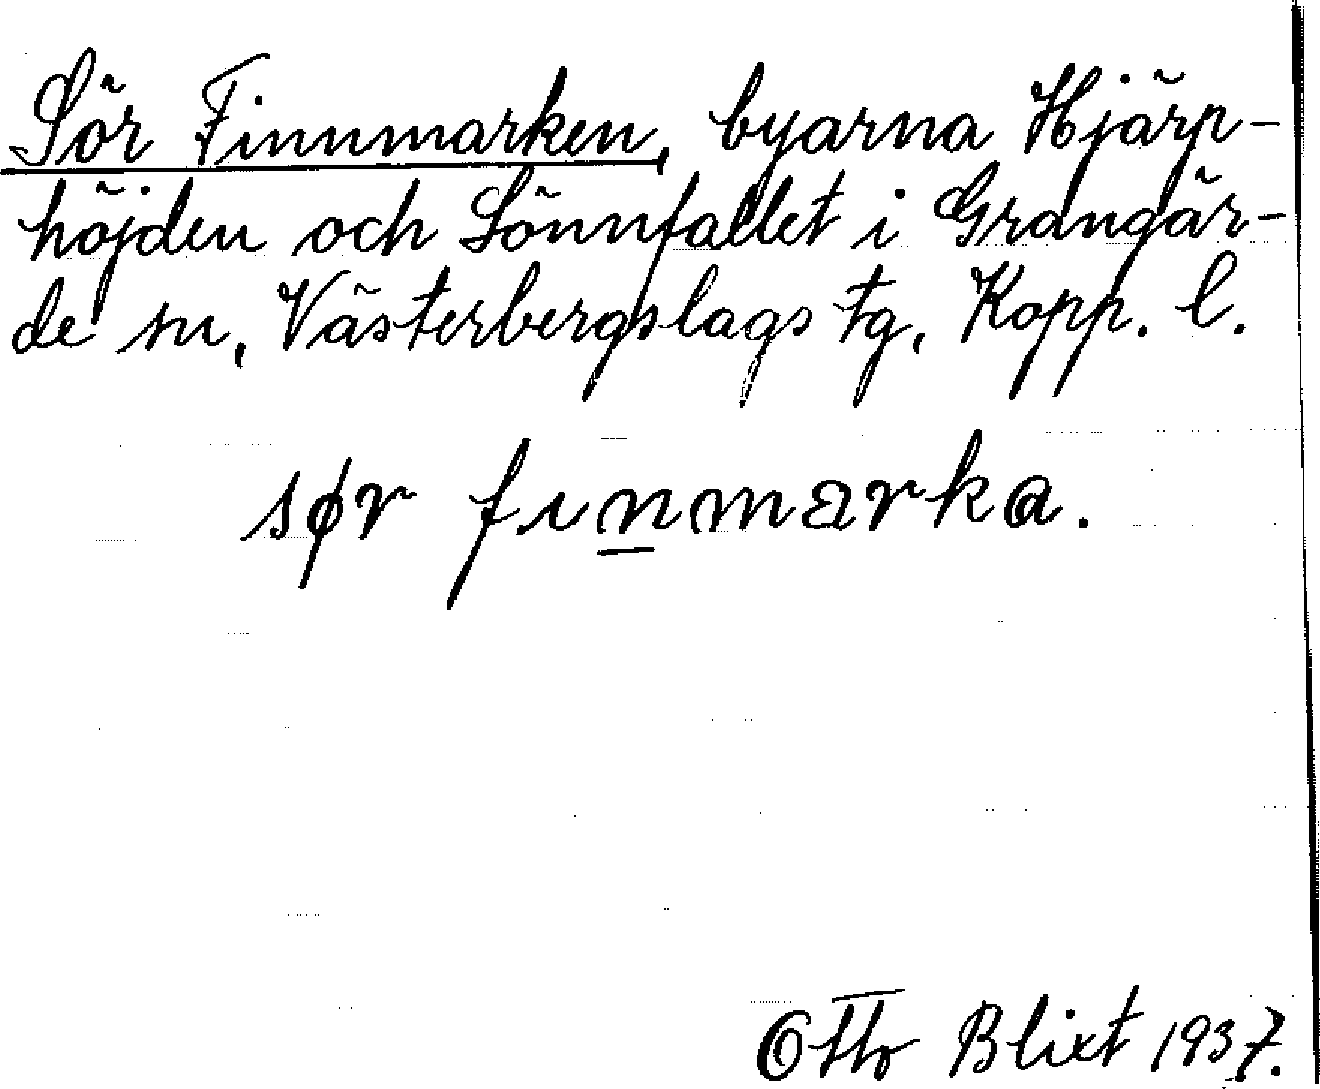 Sör Finnmarken, byarna Hjärp-
höjden och Sönnfallet i Grangär-
de sn, Västerbergslags tg, Kopp. l.
sør fınmarka.
Otto Blixt 1937.